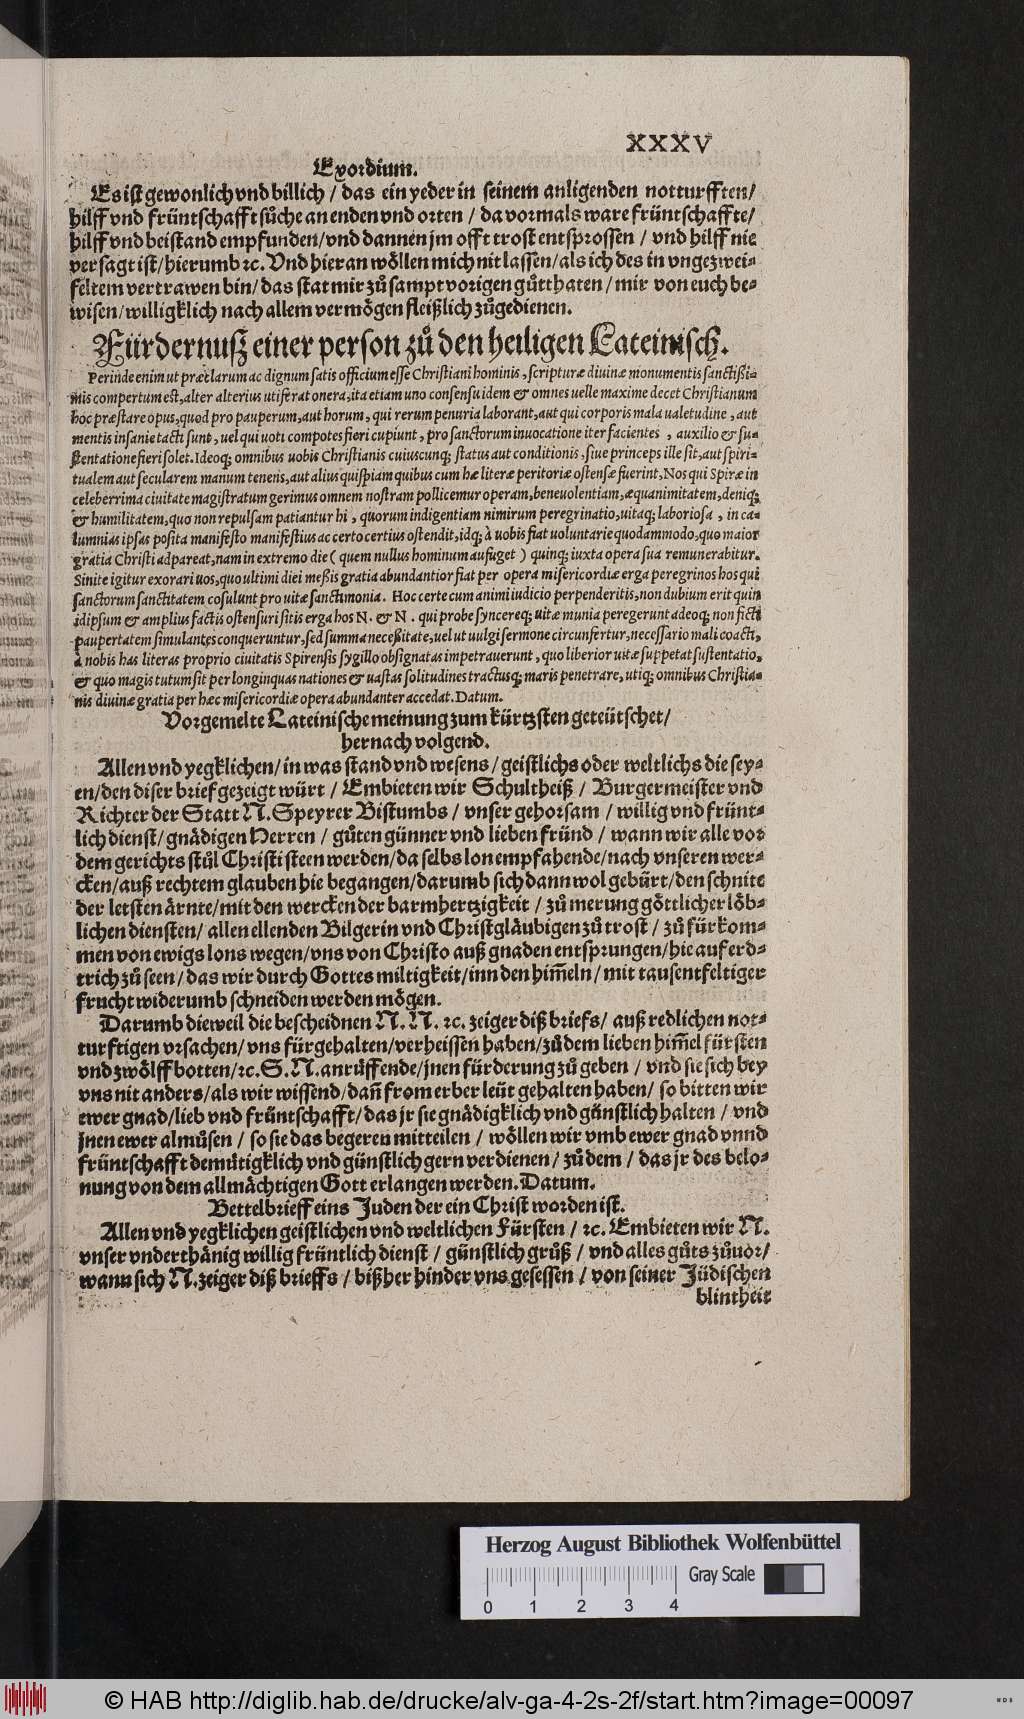 XXXV
Exordium.
Es ist gewonlich vnd billich / das ein yeder in seinem anligenden notturfften/
hilff vnd früntschafft sůche an enden vnd orten / da vormals ware früntschaffte/
hilff vnd beistand empfunden/vnd dannen jm offt trost entsprossen / vnd hilff nie
versagt ist/hierumb ꝛc. Vnd hieran wöllen mich nit lassen/als ich des in vngezwei⸗
feltem vertrawen bin/das stat mir zů sampt vorigen gůtthaten/mir von euch be⸗
wisen/willigklich nach allem vermögen fleißlich zůgedienen.
Fürdernusz einer person zů den heiligen Lateinisch.
Perinde enim ut præclarum ac dignum satis officium esse Christiani hominis, scripturæ diuinæ monumentis sanctißi⸗
mis compertum est, alter alterius uti ferat onera, ita etiam uno consensu idem & omnes uelle maxime decet Christianum
hoc præstare opus, quod pro pauperum, aut horum, qui rerum penuria laborant, aut qui corporis mala ualetudine, aut
mentis insanie tacti sunt, uel qui uoti compotes fieri cupiunt, pro sanctorum inuocatione iter facientes, auxilio & su⸗
stentatione fieri solet. Ideoq; omnibus uobis Christianis cuiuscunq; status aut conditionis, siue princeps ille sit, aut spiri⸗
tualem aut secularem manum tenens, aut alius quispiam quibus cum hæ literæ peritoriæ ostensæ fuerint, Nos qui Spiræ in
celeberrima ciuitate magistratum gerimus omnem nostram pollicemur operam, beneuolentiam, æquanimitatem, deniq;
& humilitatem, quo non repulsam patiantur hi, quorum indigentiam nimirum peregrinatio, uitaq; laboriosa, in ca⸗
lumnias ipsas posita manifesto manifestius ac certo certius ostendit, idq; à uobis fiat uoluntarie quodammodo, quo maior
gratia Christi adpareat, nam in extremo die ( quem nullus hominum aufuget ) quinq; iuxta opera sua remunerabitur.
Sinite igitur exorari uos, quo ultimi diei meßis gratia abundantior fiat per opera misericordiæ erga peregrinos hos qui
sanctorum sanctitatem cōsulunt pro uitæ sanctimonia. Hoc certe cum animi iudicio perpenderitis, non dubium erit quin
idipsum & amplius factis ostensuri sitis erga hos N. & N. qui probe syncereq; uitæ munia peregerunt adeoq; non ficti
paupertatem simulantes conqueruntur, sed summa neceßitate, uel ut uulgi sermone circunfertur, necessario mali coacti,
à nobis has literas proprio ciuitatis Spirensis sygillo obsignatas impetrauerunt, quo liberior uitæ suppetat sustentatio,
& quo magis tutum sit per longinquas nationes & uastas solitudines tractusq; maris penetrare, utiq; omnibus Christia⸗
nis diuinæ gratia per hæc misericordiæ opera abundanter accedat. Datum.
Vorgemelte Lateinische meinung zum kürtzsten geteütschet/
hernach volgend.
Allen vnd yegklichen/in was stand vnd wesens/geistlichs oder weltlichs die sey⸗
en/den diser brief gezeigt würt / Embieten wir Schultheiß / Burgermeister vnd
Richter der Statt N. Speyrer Bistumbs / vnser gehorsam / willig vnd frünt⸗
lich dienst/gnädigen Herren / gůten günner vnd lieben fründ / wann wir alle vor
dem gerichts stůl Christi steen werden/da selbs lon empfahende/nach vnseren wer⸗
cken/auß rechtem glauben hie begangen/darumb sich dann wol gebürt/den schnitt
der letsten ärnte/mit den wercken der barmhertzigkeit / zů merung göttlicher löb⸗
lichen diensten/ allen ellenden Bilgerin vnd Christgläubigen zů trost / zů fürkom⸗
men von ewigs lons wegen/vns von Christo auß gnaden entsprungen/hie auf erd⸗
trich zů seen/das wir durch Gottes miltigkeit/inn den him̄eln/mit tausentfeltiger
frucht widerumb schneiden werden mögen.
Darumb dieweil die bescheidnen N. N. ꝛc. zeiger diß briefs/ auß redlichen not⸗
turftigen vrsachen/vns fürgehalten/verheissen haben/zů dem lieben him̄el fürsten
vnd zwölff botten/ꝛc. S. N. anrüffende/jnen fürderung zů geben / vnd sie sich bey
vns nit anders/als wir wissend/dañ from erber leüt gehalten haben/ so bitten wir
ewer gnad/lieb vnd früntschafft/das jr sie gnädigklich vnd günstlich halten / vnd
jnen ewer almůsen / so sie das begeren mitteilen / wöllen wir vmb ewer gnad vnnd
früntschafft demütigklich vnd günstlich gern verdienen/ zů dem / das jr des belo⸗
nung von dem allmächtigen Gott erlangen werden. Datum.
Bettelbrieff eins Juden der ein Christ worden ist.
Allen vnd yegklichen geistlichen vnd weltlichen Fürsten / ꝛc. Embieten wir N.
vnser vnderthänig willig früntlich dienst / günstlich grůß / vnd alles gůts zůuor/
wann sich N. zeiger diß brieffs / bißher hinder vns gesessen / von seiner Jüdischen
blintheit
Herzog August Bibliothek Wolfenbüttel
Gray Scale
0 1 2 3 4
© HAB http://diglib.hab.de/drucke/alv-ga-4-2s-2f/start.htm?image=00097